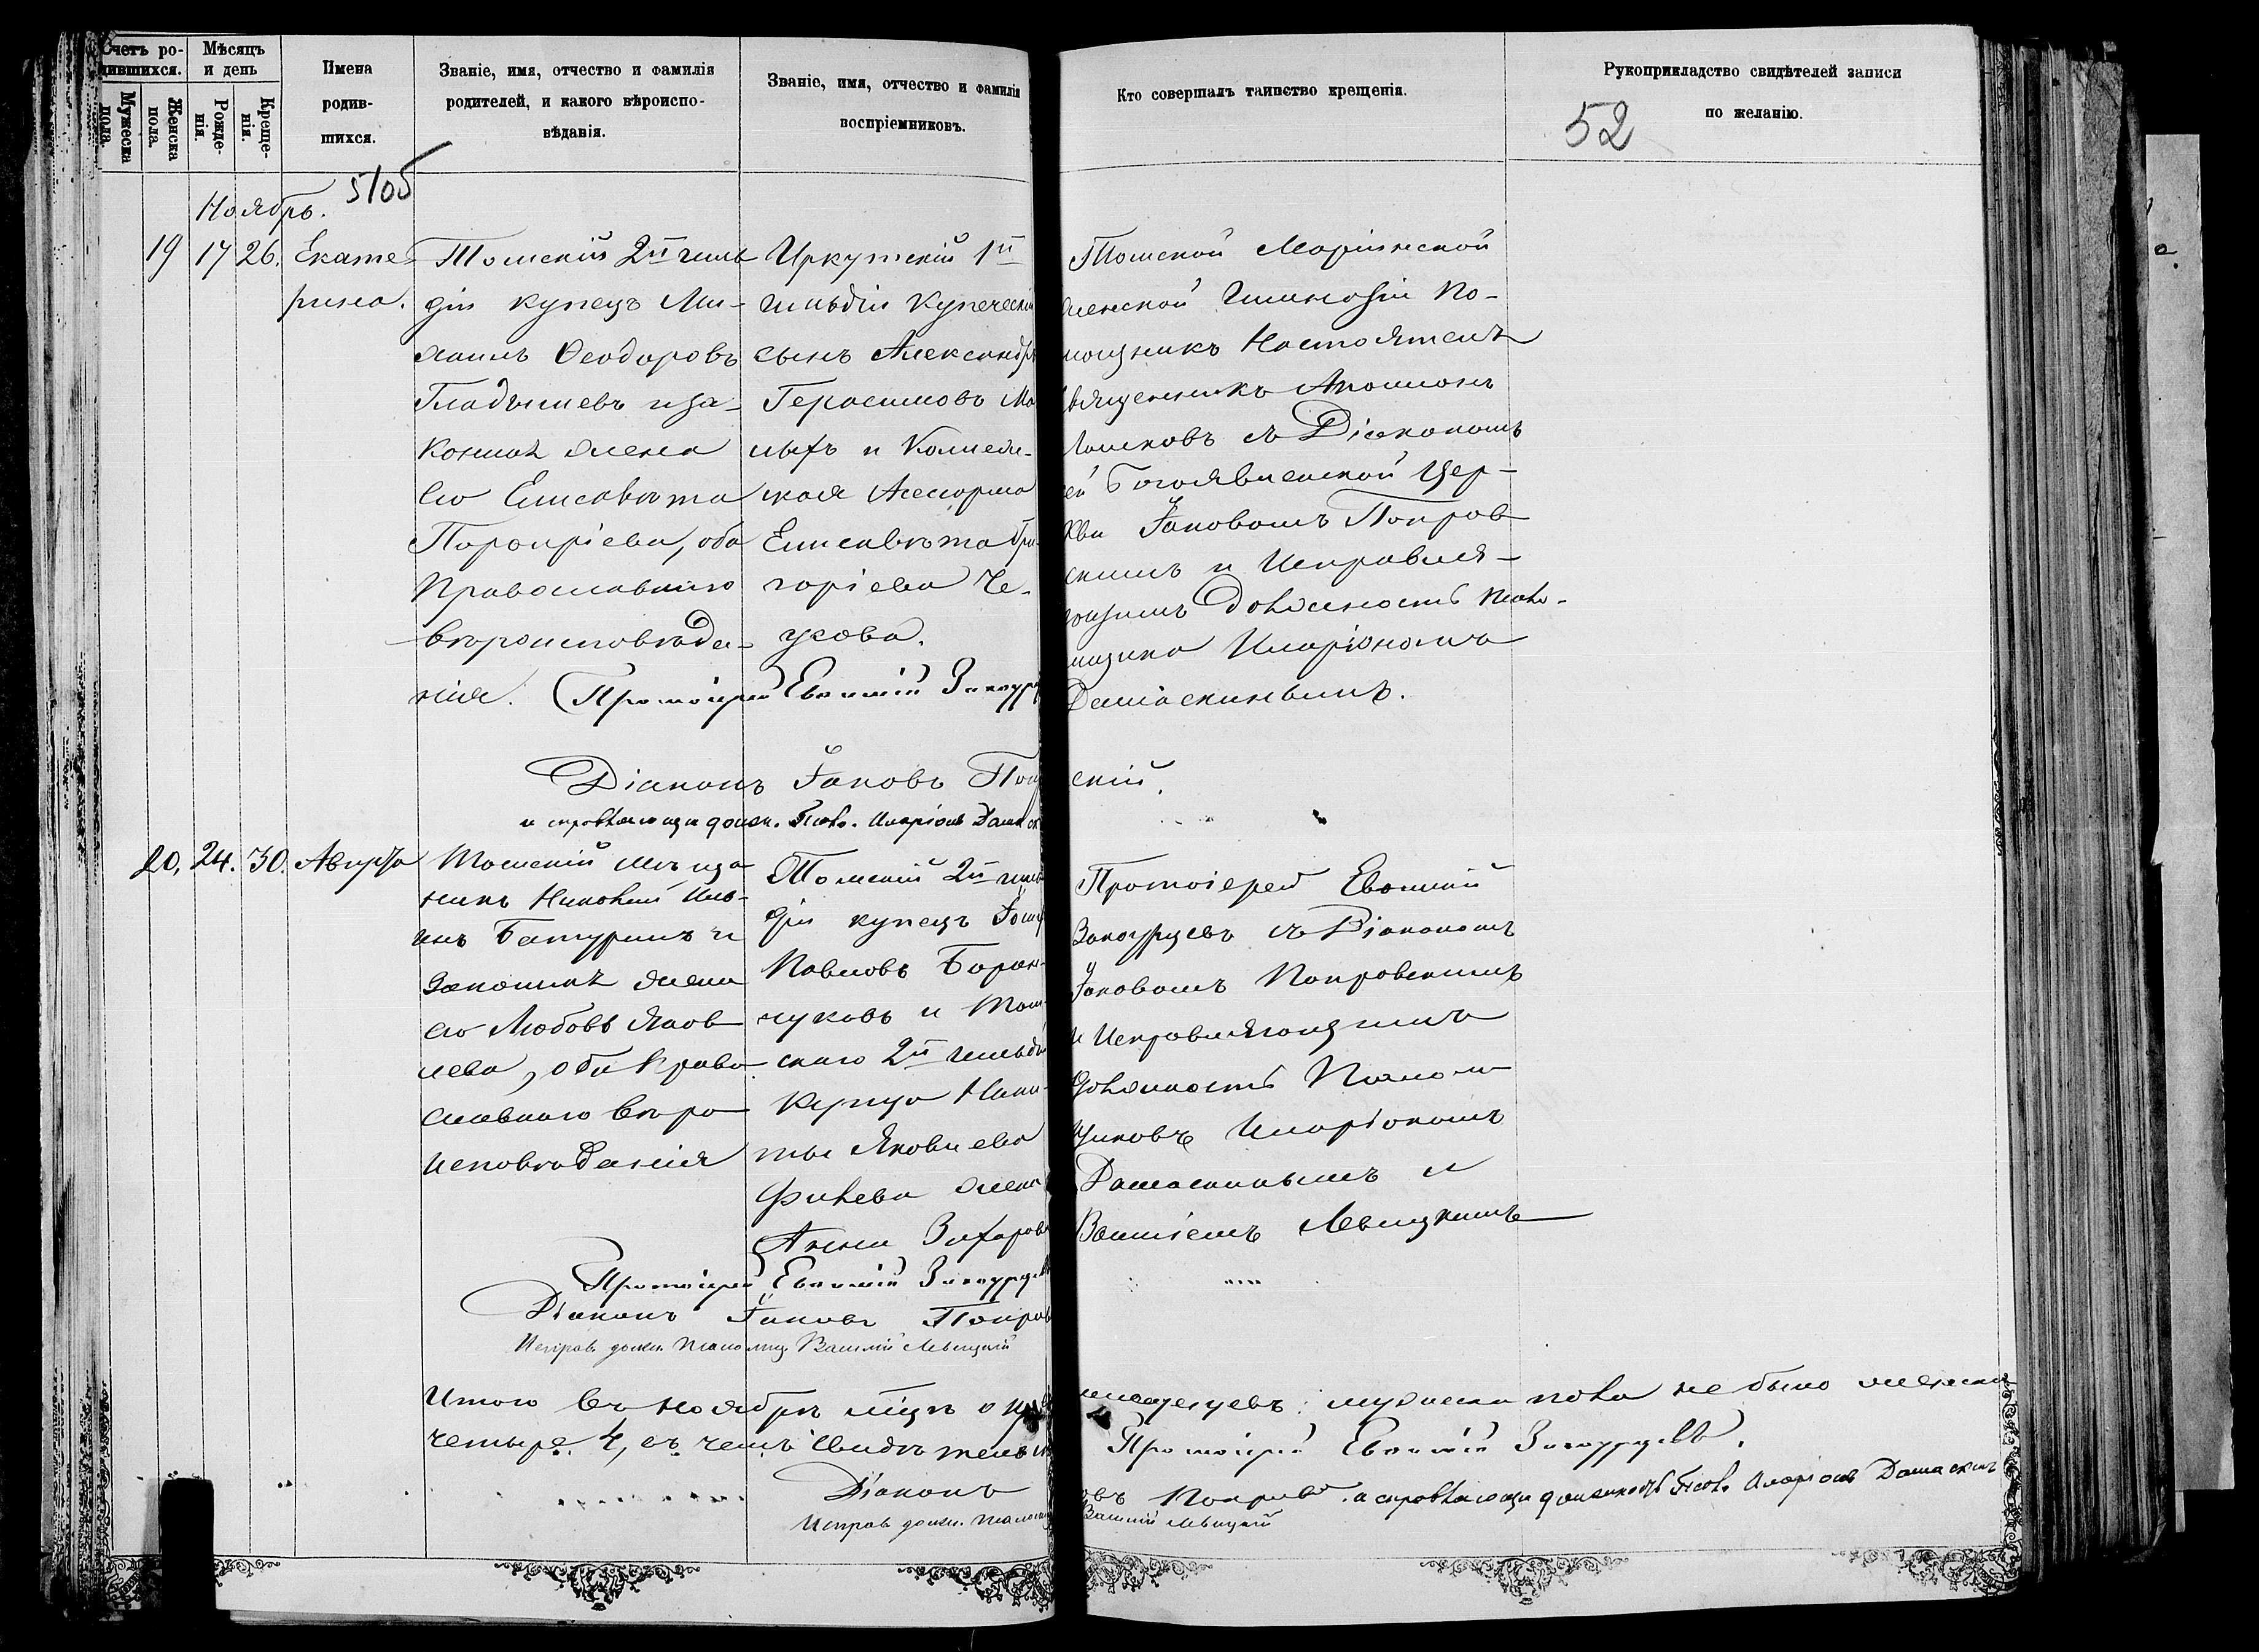 Счетъ ро-
дившихся.
Мужеска
пола.
Женска
пола.
Мѣсяцъ
и день
Рожде-
нія.
Креще-
нія.
Имена
родив-
шихся.
Званіе, имя, отчество и фамилія
родителей, и какого вѣроиспо-
вѣданія.
Званіе, имя, отчество и фамилія
воспріемниковъ.
Кто совершалъ таинство крещенія.
Рукоприкладство свидѣтелей записи
по желанію.
52
5105
Ноябрь.
19 17 26. Екате-
рина.
Томскій 2й гиль
діи купецъ Ми-
хаилъ Ѳеодоровъ
Гладышевъ и за-
конная жена
его Елисавета
Порфиріева, оба
Православнаго
вѣроисповѣда-
нія.
Иркутскій 1й
гильдіи купеческій
сынъ Александръ
Герасимовъ Ма
лыхъ и Коллеж-
ская Асессорша
Елисавета Гри-
горіева Че-
Томской Маріинской
женской Гимназіи По-
мощникъ Настоятеля
священникъ
съ Діакономъ
Богоявленской Цер-
кви Іаковомъ Покров
скимъ и Исправля-
ющимъ должность Псало-
мщика Иларіономъ
Дамаскинымъ.
Протоіерей Евѳимій
Діаконъ Іаковъ Покров
скій.
и справляющи долж. Псал. Иларіонъ Дамаск
20. 24. 30. Августа
Томскій мѣща
нинъ Николай Иль-
инъ Батуринъ и
законная жена
его Любовь Яков
лева, оба Право
славнаго вѣро
исповѣданія
Томскій 2й гиль
діи купецъ
Павловъ Баран-
чуковъ и Том-
скаго 2й гильдіи
купца Ники-
ты Яковлева
жена
Анна Захарова
Протоіерей Евѳимій
съ Діакономъ
Іаковомъ Покровскимъ
и Исправляющимъ
должность Псалом
щиковъ Иларіономъ
Дамаскинымъ и
Василіемъ Левицкимъ
Протоіерей Евѳимій
Діаконъ Іаковъ Покров
Исправ. должн. Псаломщ. Василій Левицкій
Итого въ ноябрѣ мцѣ
младенцевъ: мужеска пола не было женска
четыре 4, въ чемъ свидѣтельст
Протоіерей Евѳимій
Діаконъ
Покров. и справляющи должность Псал. Иларіонъ Дамаскинъ
Исправ. должн. Псаломщ. Василій Левицкій